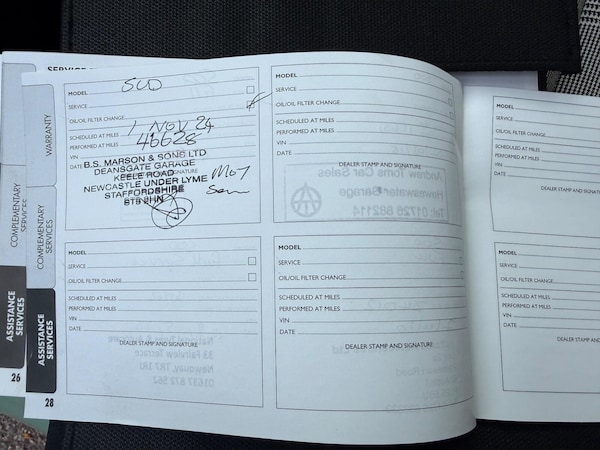 SERVICE
MODEL SUD
SERVICE
OIL/OIL FILTER CHANGE
SCHEDULED AT MILES 1 NOV 24
PERFORMED AT MILES 46628
VIN
DATE
B.S. MARSON & SONS LTD
DEANSGATE GARAGE
KEELE ROAD
NEWCASTLE UNDER LYME
STAFFORDSHIRE
MOT
MODEL
SERVICE
OIL/OIL FILTER CHANGE
SCHEDULED AT MILES
PERFORMED AT MILES
VIN
DATE
DEALER STAMP AND SIGNATURE
Andrew Toms Car Sales
Haweswater Garage
Tel: 01726 882114
SERVICE
OIL/OIL FILTER CHANGE
SCHEDULED AT MILES
PERFORMED AT MILES
VIN
DATE
DEALER STAMP AND SIGN
MODEL
SERVICE
OIL/OIL FILTER CHANGE
SCHEDULED AT MILES
PERFORMED AT MILES
VIN
DATE
DEALER STAMP AND SIGNATURE
33 Fairview Terrace
Newquay, TR7 1RJ
01637 872 562
MODEL
SERVICE
OIL/OIL FILTER CHANGE
SCHEDULED AT MILES
PERFORMED AT MILES
VIN
DATE
DEALER STAMP AND SIGNATURE
MODEL
SERVICE
OIL/OIL FILTER CHANGE
SCHEDULED AT MILES
PERFORMED AT MILES
VIN
DATE
DEALER STAMP AND
WARRANTY
COMPLEMENTARY SERVICES
ASSISTANCE SERVICES
28
COMPLEMENTARY SERVICES
ASSISTANCE SERVICES
26